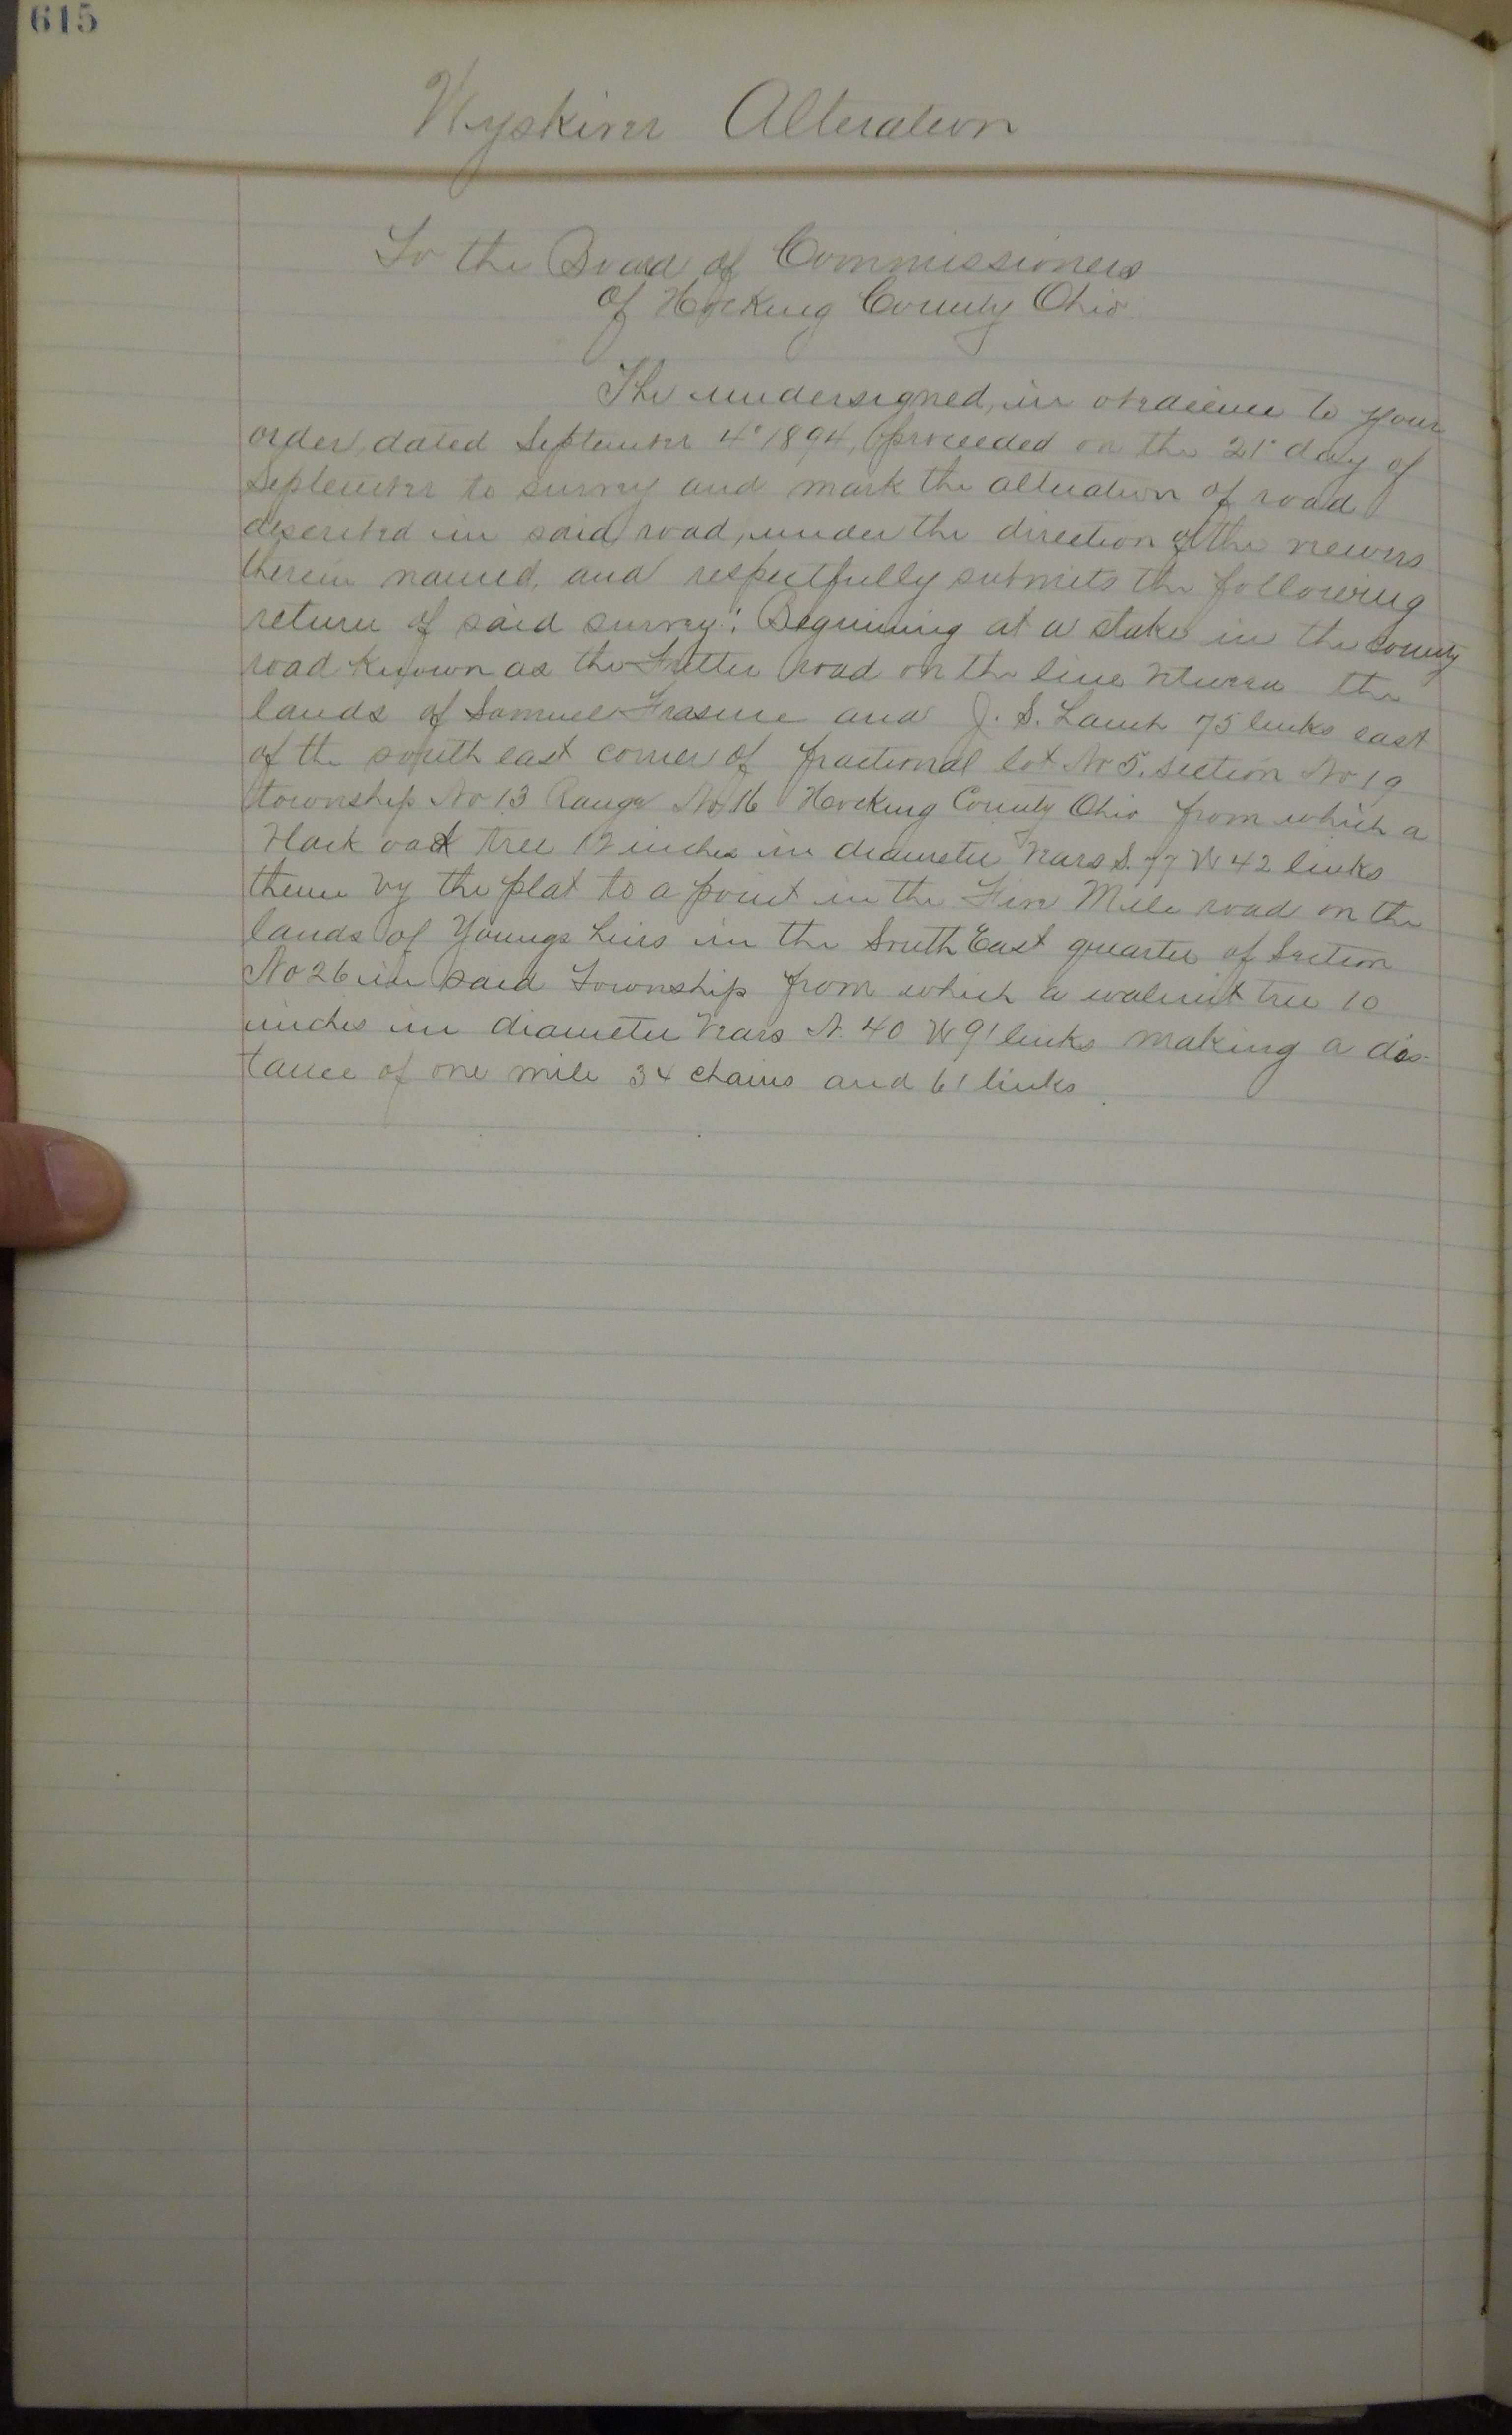 615
Wyskiver Alteration
To the Board of Commissioners
of Hocking County Ohio
The undersigned, in obedience to your
order, dated September 4" 1894, proceeded on the 21" day of
September to survey and mark the alteration of road
described in said road, under the direction of the viewers
therein named, and respectfully submits the following
return of said survey: Beginning at a stake in the county
road known as the road on the line between the
lands of Samuel Frasure and J. S. Lamb 75 links east
of the south east corner of fractional lot No 5. section No 19
township No 13 Range No 16 Hocking County Ohio from which a
black oak tree 12 inches in diameter bears S. 77 W 42 links
thence by the plat to a point in the Five Mile road on the
lands of Youngs heirs in the South East quarter of Section
No 26 in said Township from which a walnut tree 10
inches in diameter bears N. 40 W 91 links making a dis-
tance of one mile 34 chains and 61 links